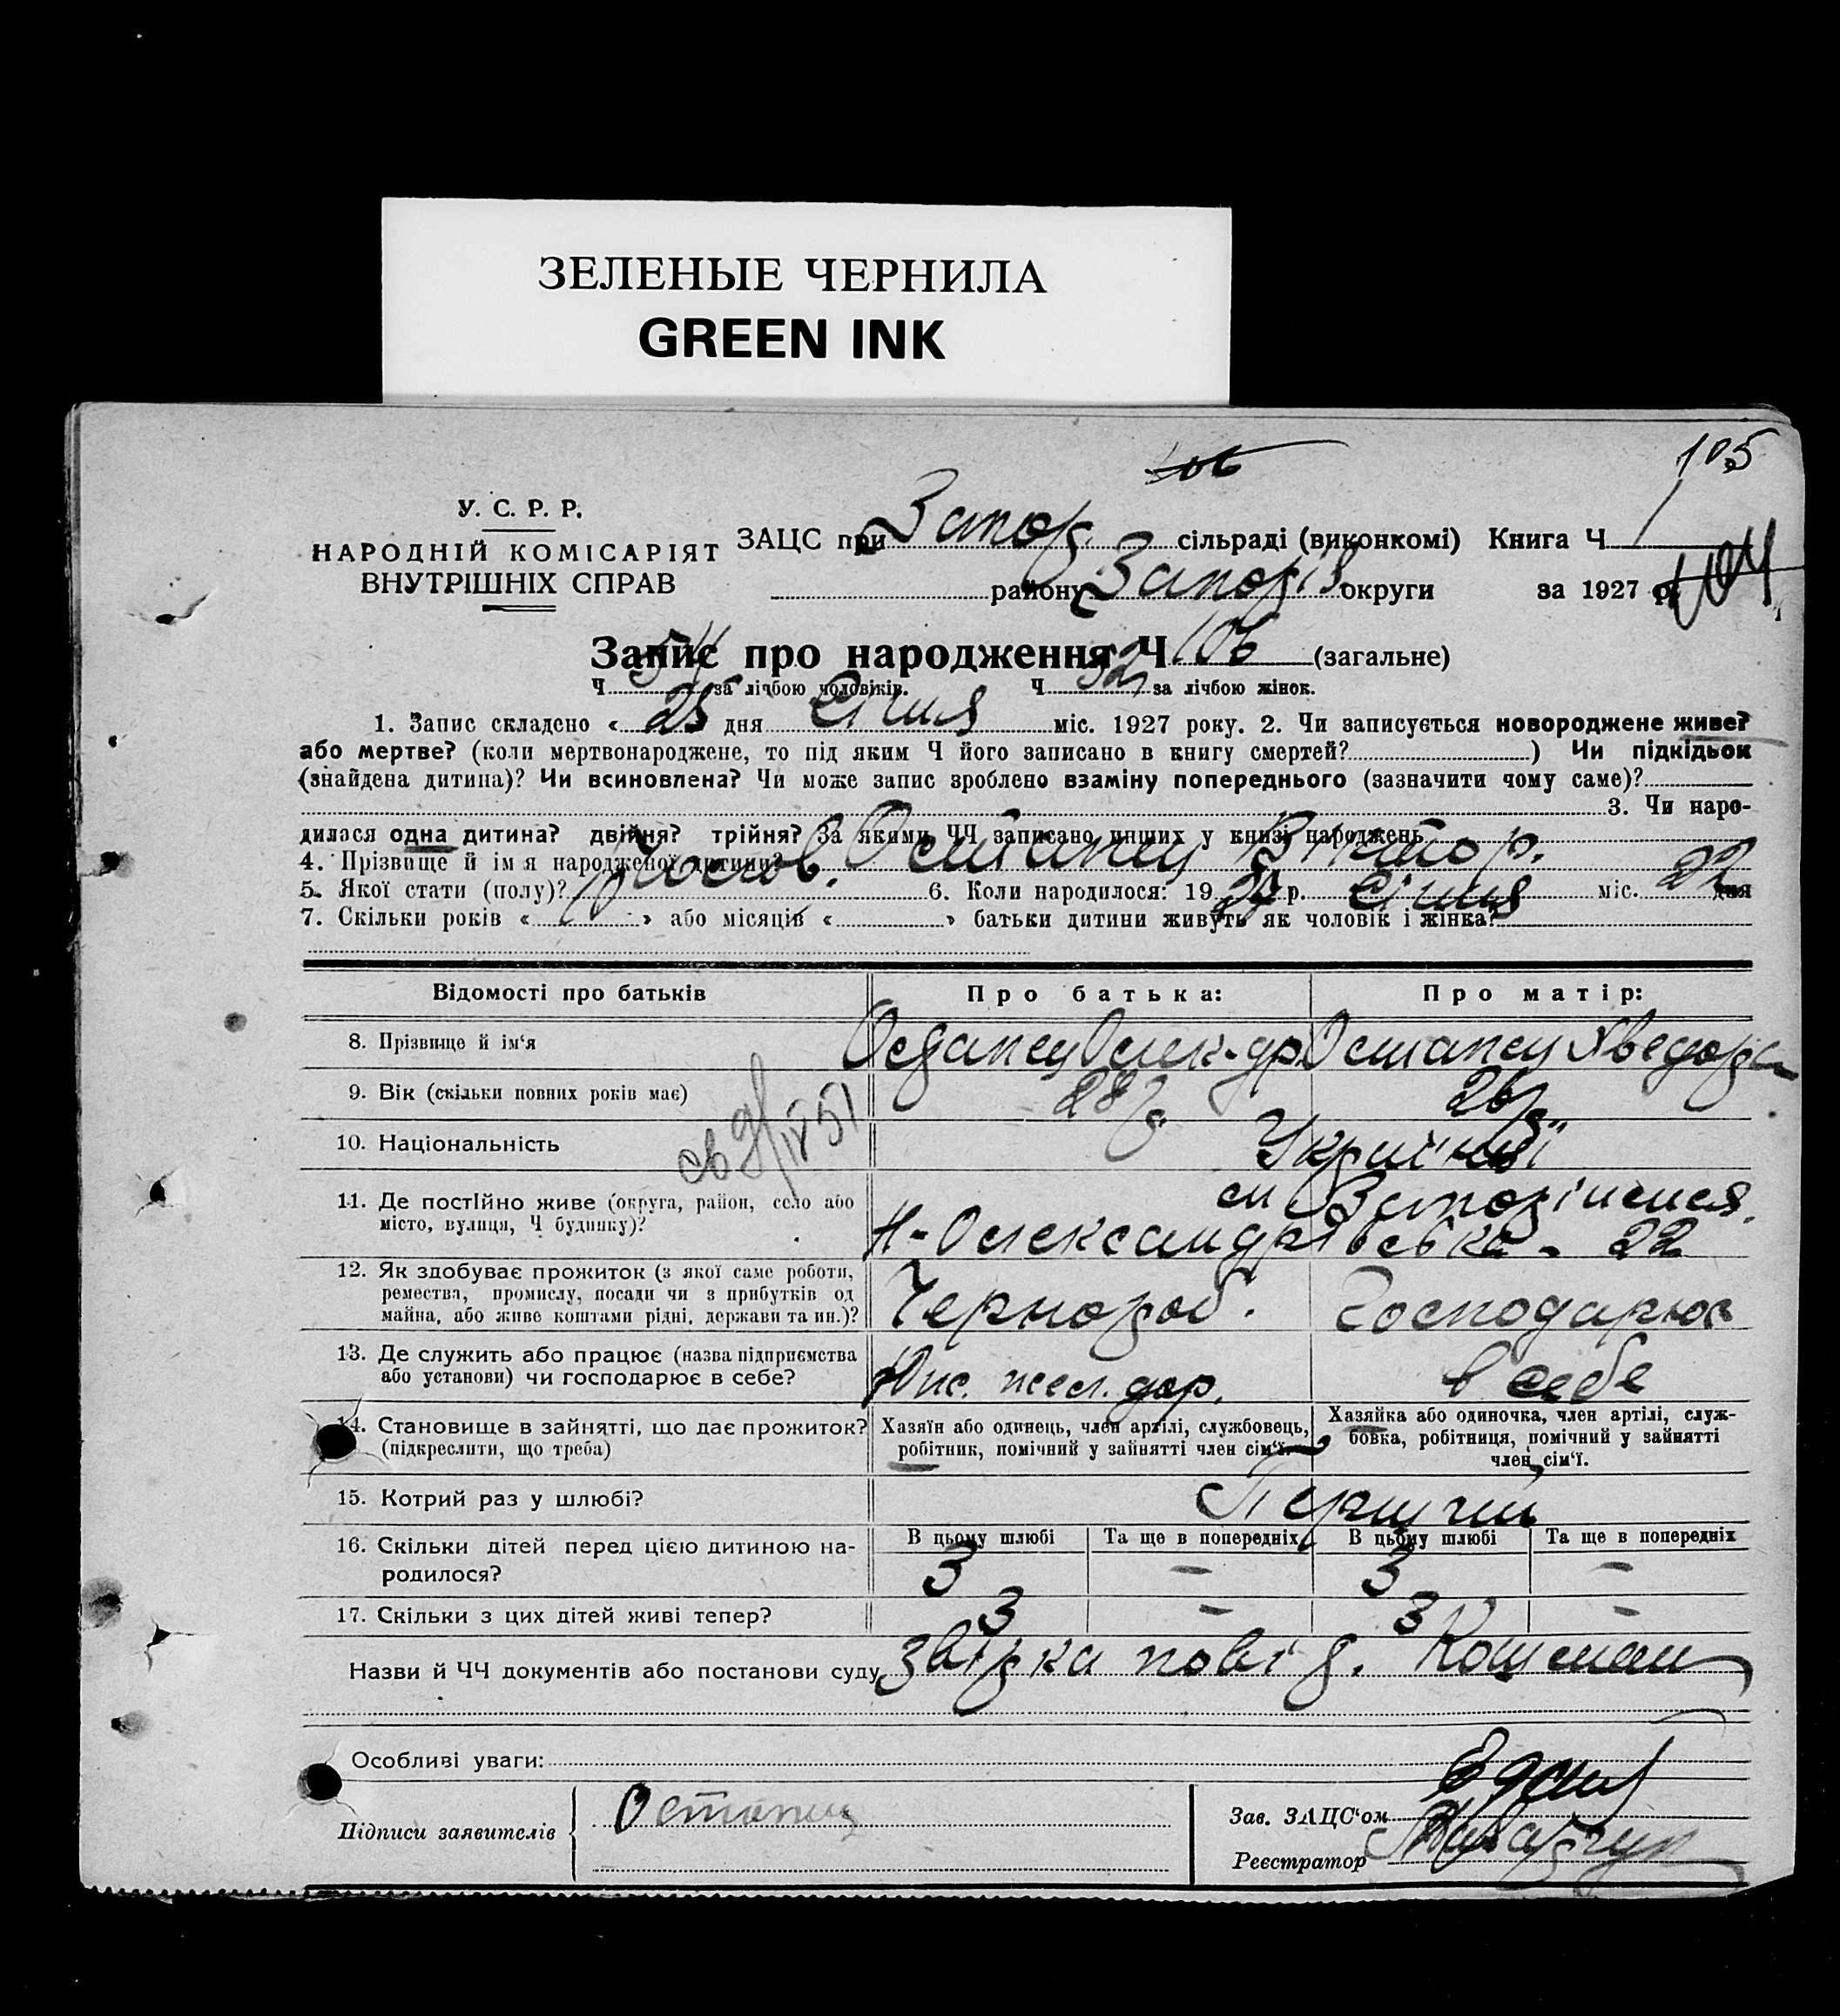 ЗЕЛЕНЫЕ ЧЕРНИЛА
GREEN INK
106
105
У. С. Р. Р.
НАРОДНІЙ КОМІСАРІЯТ
ВНУТРІШНІХ СПРАВ
ЗАЦС при Запор. сільраді (виконкомі) Книга Ч 1
району Запоріз округи за 1927 р. 104
Запис про народження Ч 106 (загальне)
Ч 54 за лічбою чоловіків. Ч 52 за лічбою жінок.
1. Запис складено « 25 дня Січня міс. 1927 року. 2. Чи записується новороджене живе?
або мертве? (коли мертвонароджене, то під яким Ч його записано в книгу смертей?) Чи підкідьок
(знайдена дитина)? Чи всиновлена? Чи може запис зроблено взаміну попереднього (зазначити чому саме)?
3. Чи наро-
дилася одна дитина? двійня? трійня? За якими ЧЧ записано инших у книзі народжень
4. Прізвище й ім'я народженої дитини? Остапец Віктор.
5. Якої стати (полу)? Чолов. 6. Коли народилося: 1927 р. Січня міс. 22 дня
7. Скільки років « 10 » або місяців « » батьки дитини живуть як чоловік і жінка?
Відомості про батьків
Про батька:
Про матір:
8. Прізвище й ім'я
Остапец Олек-др
Остапец Хведора
9. Вік (скільки повних років має)
28 р.
26 р.
10. Національність
Україн
11. Де постійно живе (округа, район, село або
місто, вулиця, Ч будинку)?
ст Запоріжжя.
Н-Олександрівська - 22
12. Як здобуває прожиток (з якої саме роботи,
ремества, промислу, посади чи з прибутків од
майна, або живе коштами рідні, держави та ин.)?
Чернороб.
Господарює
13. Де служить або працює (назва підприємства
або установи) чи господарює в себе?
Пис. жел. дор.
в себе
14. Становище в зайнятті, що дає прожиток?
(підкреслити, що треба)
Хазяїн або одинець, член артілі, службовець,
робітник, помічний у зайнятті член сім'ї.
Хазяйка або одиночка, член артілі, служ-
бовка, робітниця, помічний у зайнятті
член сім'ї.
15. Котрий раз у шлюбі?
Перший
16. Скільки дітей перед цією дитиною на-
родилося?
В цьому шлюбі
Та ще в попередніх
В цьому шлюбі
Та ще в попередніх
3 - 3 -
17. Скільки з цих дітей живі тепер?
3 - 3 -
Назви й ЧЧ документів або постанови суду
Особливі уваги:
Підписи заявителів
Остапец
Зав. ЗАЦС'ом
Реєстратор